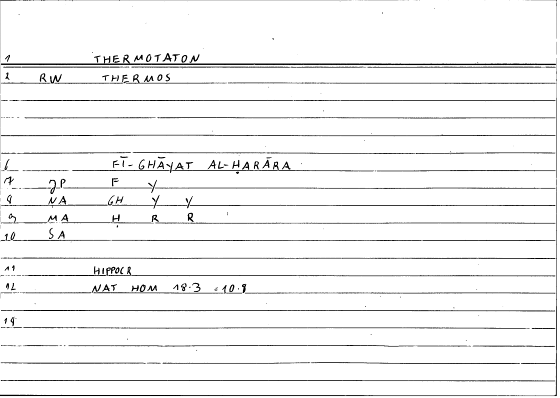 1 THERMOTATON
2 RW THERMOS
6 FĪ-GHĀYAT AL-ḤARĀRA
7 JP F Y
8 NA GH Y Y
9 MA Ḥ R R
10 SA
11 HIPPOCR
12 NAT HOM 18.3 10.8